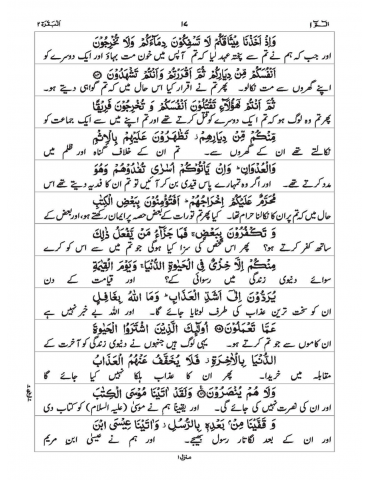 البقرة ٢ ١٧ الٓمّٓ ١
وَاِذْ اَخَذْنَا مِيْثَاقَكُمْ لَا تَسْفِكُوْنَ دِمَآءَكُمْ وَلَا تُخْرِجُوْنَ
اور جب کہ ہم نے تم سے پختہ عہد لیا کہ تم آپس میں خون مت بہاؤ اور ایک دوسرے کو
اَنْفُسَكُمْ مِّنْ دِيَارِكُمْ ثُمَّ اَقْرَرْتُمْ وَاَنْتُمْ تَشْهَدُوْنَ
اپنے گھروں سے مت نکالو۔ پھر تم نے اقرار کیا اس حال میں کہ تم گواہی دیتے ہو۔
ثُمَّ اَنْتُمْ هٰٓؤُلَآءِ تَقْتُلُوْنَ اَنْفُسَكُمْ وَ تُخْرِجُوْنَ فَرِيْقًا
پھر تم وہ لوگ ہو کہ تم ایک دوسرے کو قتل کرتے ہو اور تم اپنے میں سے ایک جماعت کو
مِّنْكُمْ مِّنْ دِيَارِهِمْ تَظٰهَرُوْنَ عَلَيْهِمْ بِالْاِثْمِ
نکالتے ھے ان کے گھروں سے۔ تم ان کے خلاف گناہ اور ظلم میں
وَالْعُدْوَانِ وَاِنْ يَّاْتُوْكُمْ اُسٰرٰى تُفٰدُوْهُمْ وَهُوَ
مدد کرتے ھے۔ اور اگر وہ تمہارے پاس قیدی بن کر آئیں تو تم ان کا فدیہ دیتے ھے اس
مُحَرَّمٌ عَلَيْكُمْ اِخْرَاجُهُمْ اَفَتُؤْمِنُوْنَ بِبَعْضِ الْكِتٰبِ
حال میں کہ تم پر ان کا نکالنا حرام تھا۔ کیا پھر تم تورات کے بعض حصہ پر ایمان رکھتے ہو، اور بعض کے
وَ تَكْفُرُوْنَ بِبَعْضٍ فَمَا جَزَآءُ مَنْ يَّفْعَلُ ذٰلِكَ
ساتھ کفر کرتے ہو؟ پھر اس شخص کی سزا کیا ہوگی جو تم میں سے اس کو کرے
مِنْكُمْ اِلَّا خِزْىٌ فِى الْحَيٰوةِ الدُّنْيَا وَيَوْمَ الْقِيٰمَةِ
سوائے دنیوی زندگی میں رسوائی کے؟ اور قیامت کے دن
يُرَدُّوْنَ اِلٰٓى اَشَدِّ الْعَذَابِ وَمَا اللّٰهُ بِغَافِلٍ
ان کو سخت ترین عذاب کی طرف لوٹایا جائے گا۔ اور اللہ بے خبر نہیں ہے
عَمَّا تَعْمَلُوْنَ اُولٰٓئِكَ الَّذِيْنَ اشْتَرَوُا الْحَيٰوةَ
ان کاموں سے جو تم کرتے ہو۔ یہی لوگ ہیں جنہوں نے دنیوی زندگی کو آخرت کے
الدُّنْيَا بِالْاٰخِرَةِ فَلَا يُخَفَّفُ عَنْهُمُ الْعَذَابُ
مقابلہ میں خریدا۔ پھر ان کا عذاب ہلکا نہیں کیا جائے گا
وَلَا هُمْ يُنْصَرُوْنَ وَلَقَدْ اٰتَيْنَا مُوْسَى الْكِتٰبَ
اور ان کی نصرت نہیں کی جائے گی۔ اور یقیناً ہم نے موسیٰ (علیہ السلام) کو کتاب دی
وَ قَفَّيْنَا مِنْۢ بَعْدِهٖ بِالرُّسُلِ وَاٰتَيْنَا عِيْسَى ابْنَ
اور ان کے بعد لگاتار رسول بھیجے۔ اور ہم نے عیسیٰ ابن مریم
منزل ١